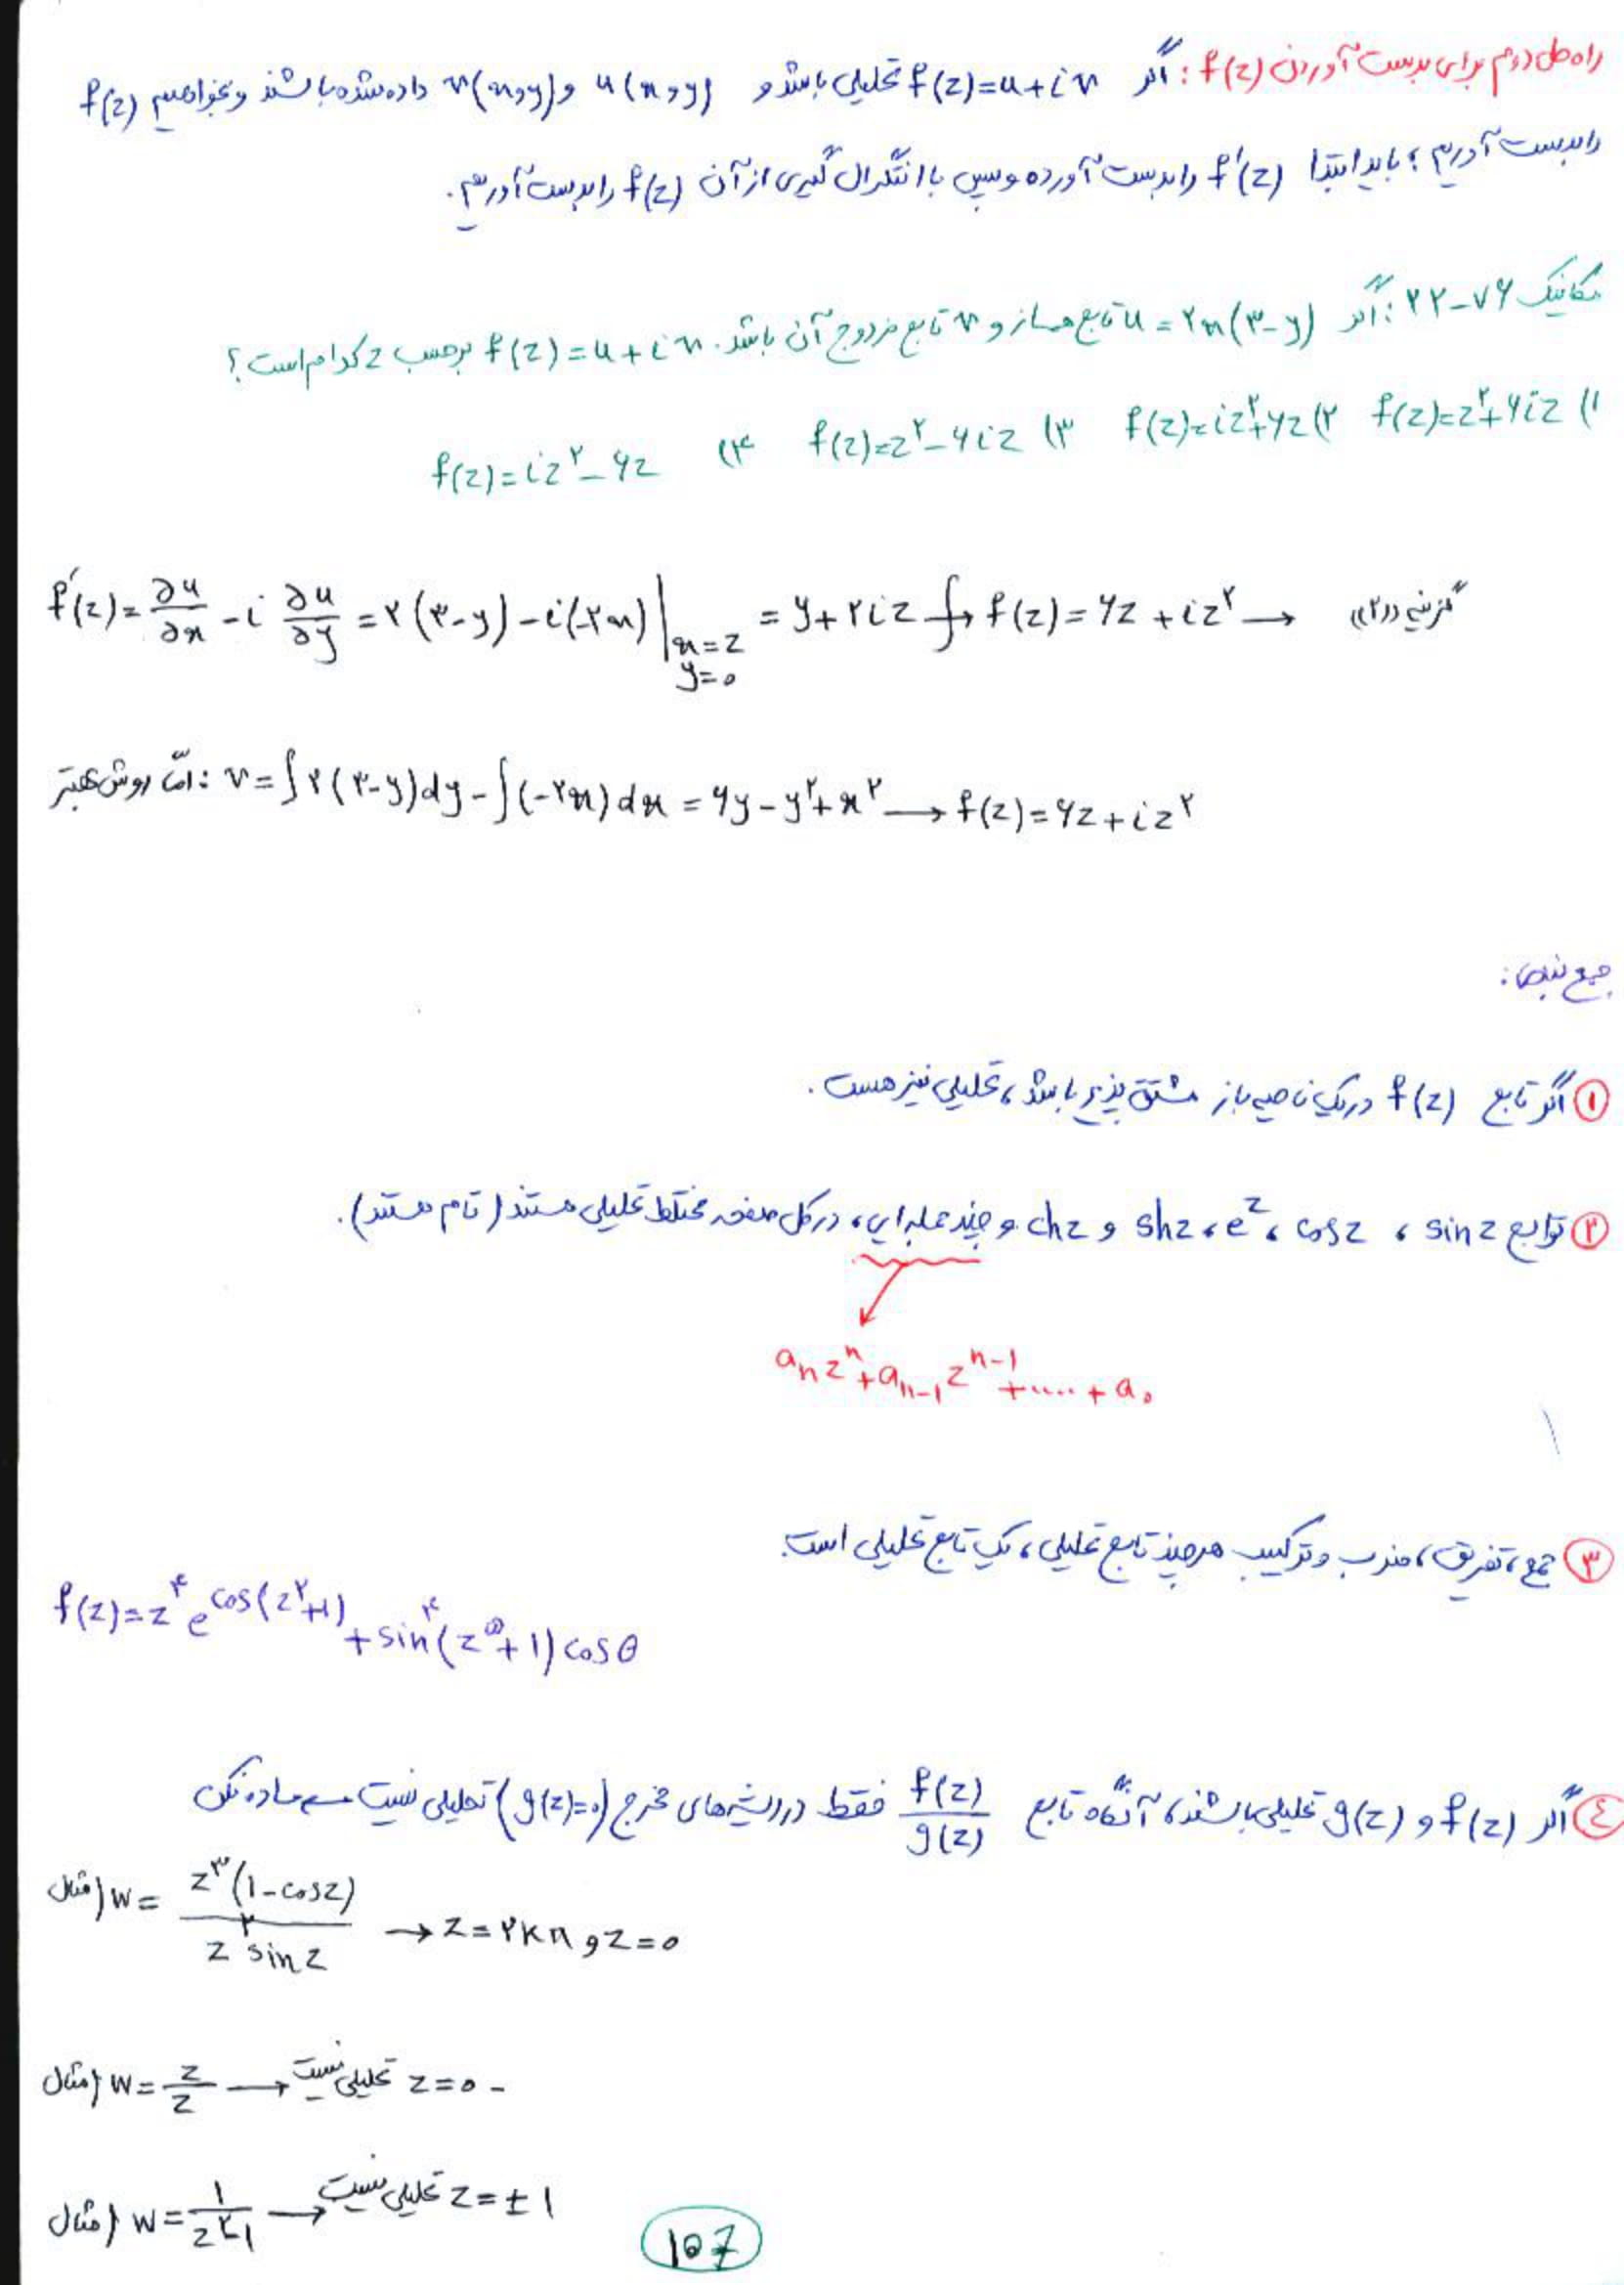 راه حل دوم برای بدست آوردن f(z) : اگر f(z)=u+iv تحلیلی باشد و u(x,y) و v(x,y) داده شده باشند و بخواهیم f(z)
را بدست آوریم ؛ باید ابتدا f'(z) را بدست آورده و سپس با انتگرال گیری از آن f(z) را بدست آوریم.
مکانیک ۷۶-۲۲ : اگر u = ۲x(۳-y) تابع همساز و v تابع مزدوج آن باشد. f(z)=u+iv برحسب z کدام است؟
۱) f(z)=z^۲+۶iz ۲) f(z)=iz^۲+۶z ۳) f(z)=z^۲-۶iz ۴) f(z)=iz^۲-۶z
f'(z)= ∂u/∂x - i ∂u/∂y = ۲(۳-y)-i(-۲x) |x=z y=۰ = ۶+۲iz ∫→ f(z)=۶z+iz^۲ → گزینه «۲»
امّا روش بهتر : v=∫۲(۳-y)dy-∫(-۲x)dx = ۶y-y^۲+x^۲ → f(z)=۶z+iz^۲
جمع بندی :
① اگر تابع f(z) در یک ناحیه باز مشتق پذیر باشد، تحلیلی نیز هست.
② توابع sin z ، cos z ، e^z ، shz و chz و چند جمله ای، در کل صفحه مختلط تحلیلی هستند (تام هستند).
a_n z^n + a_{n-1} z^{n-1} + .... + a_۰
③ جمع، تفریق، ضرب و ترکیب هر چند تابع تحلیلی، یک تابع تحلیلی است.
f(z)=z^۴ e^{cos(z^۲+1)} + sin^۴(z^۵+1) cosθ
④ اگر f(z) و g(z) تحلیلی باشند، آنگاه تابع f(z)/g(z) فقط در ریشه های مخرج (g(z)=۰) تحلیلی نیست → ساده نکن
مثال) w = z^۳(1-cosz) / z^۲ sin z → z=۲kπ و z=۰
مثال) w = z/z → تحلیلی نیست z=۰ -
مثال) w = ۱/(z^۲-1) → تحلیلی نیست z=±1
107